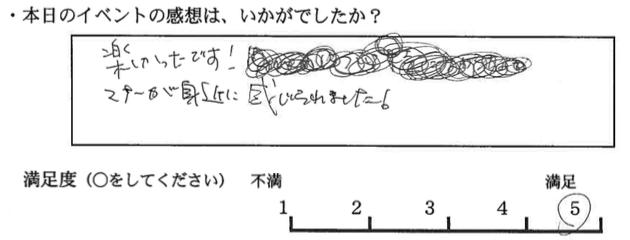 ・本日のイベントの感想は、いかがでしたか？
楽しかったです!
が身近に感じられました!
満足度（○をしてください） 不満 満足
1 2 3 4 5